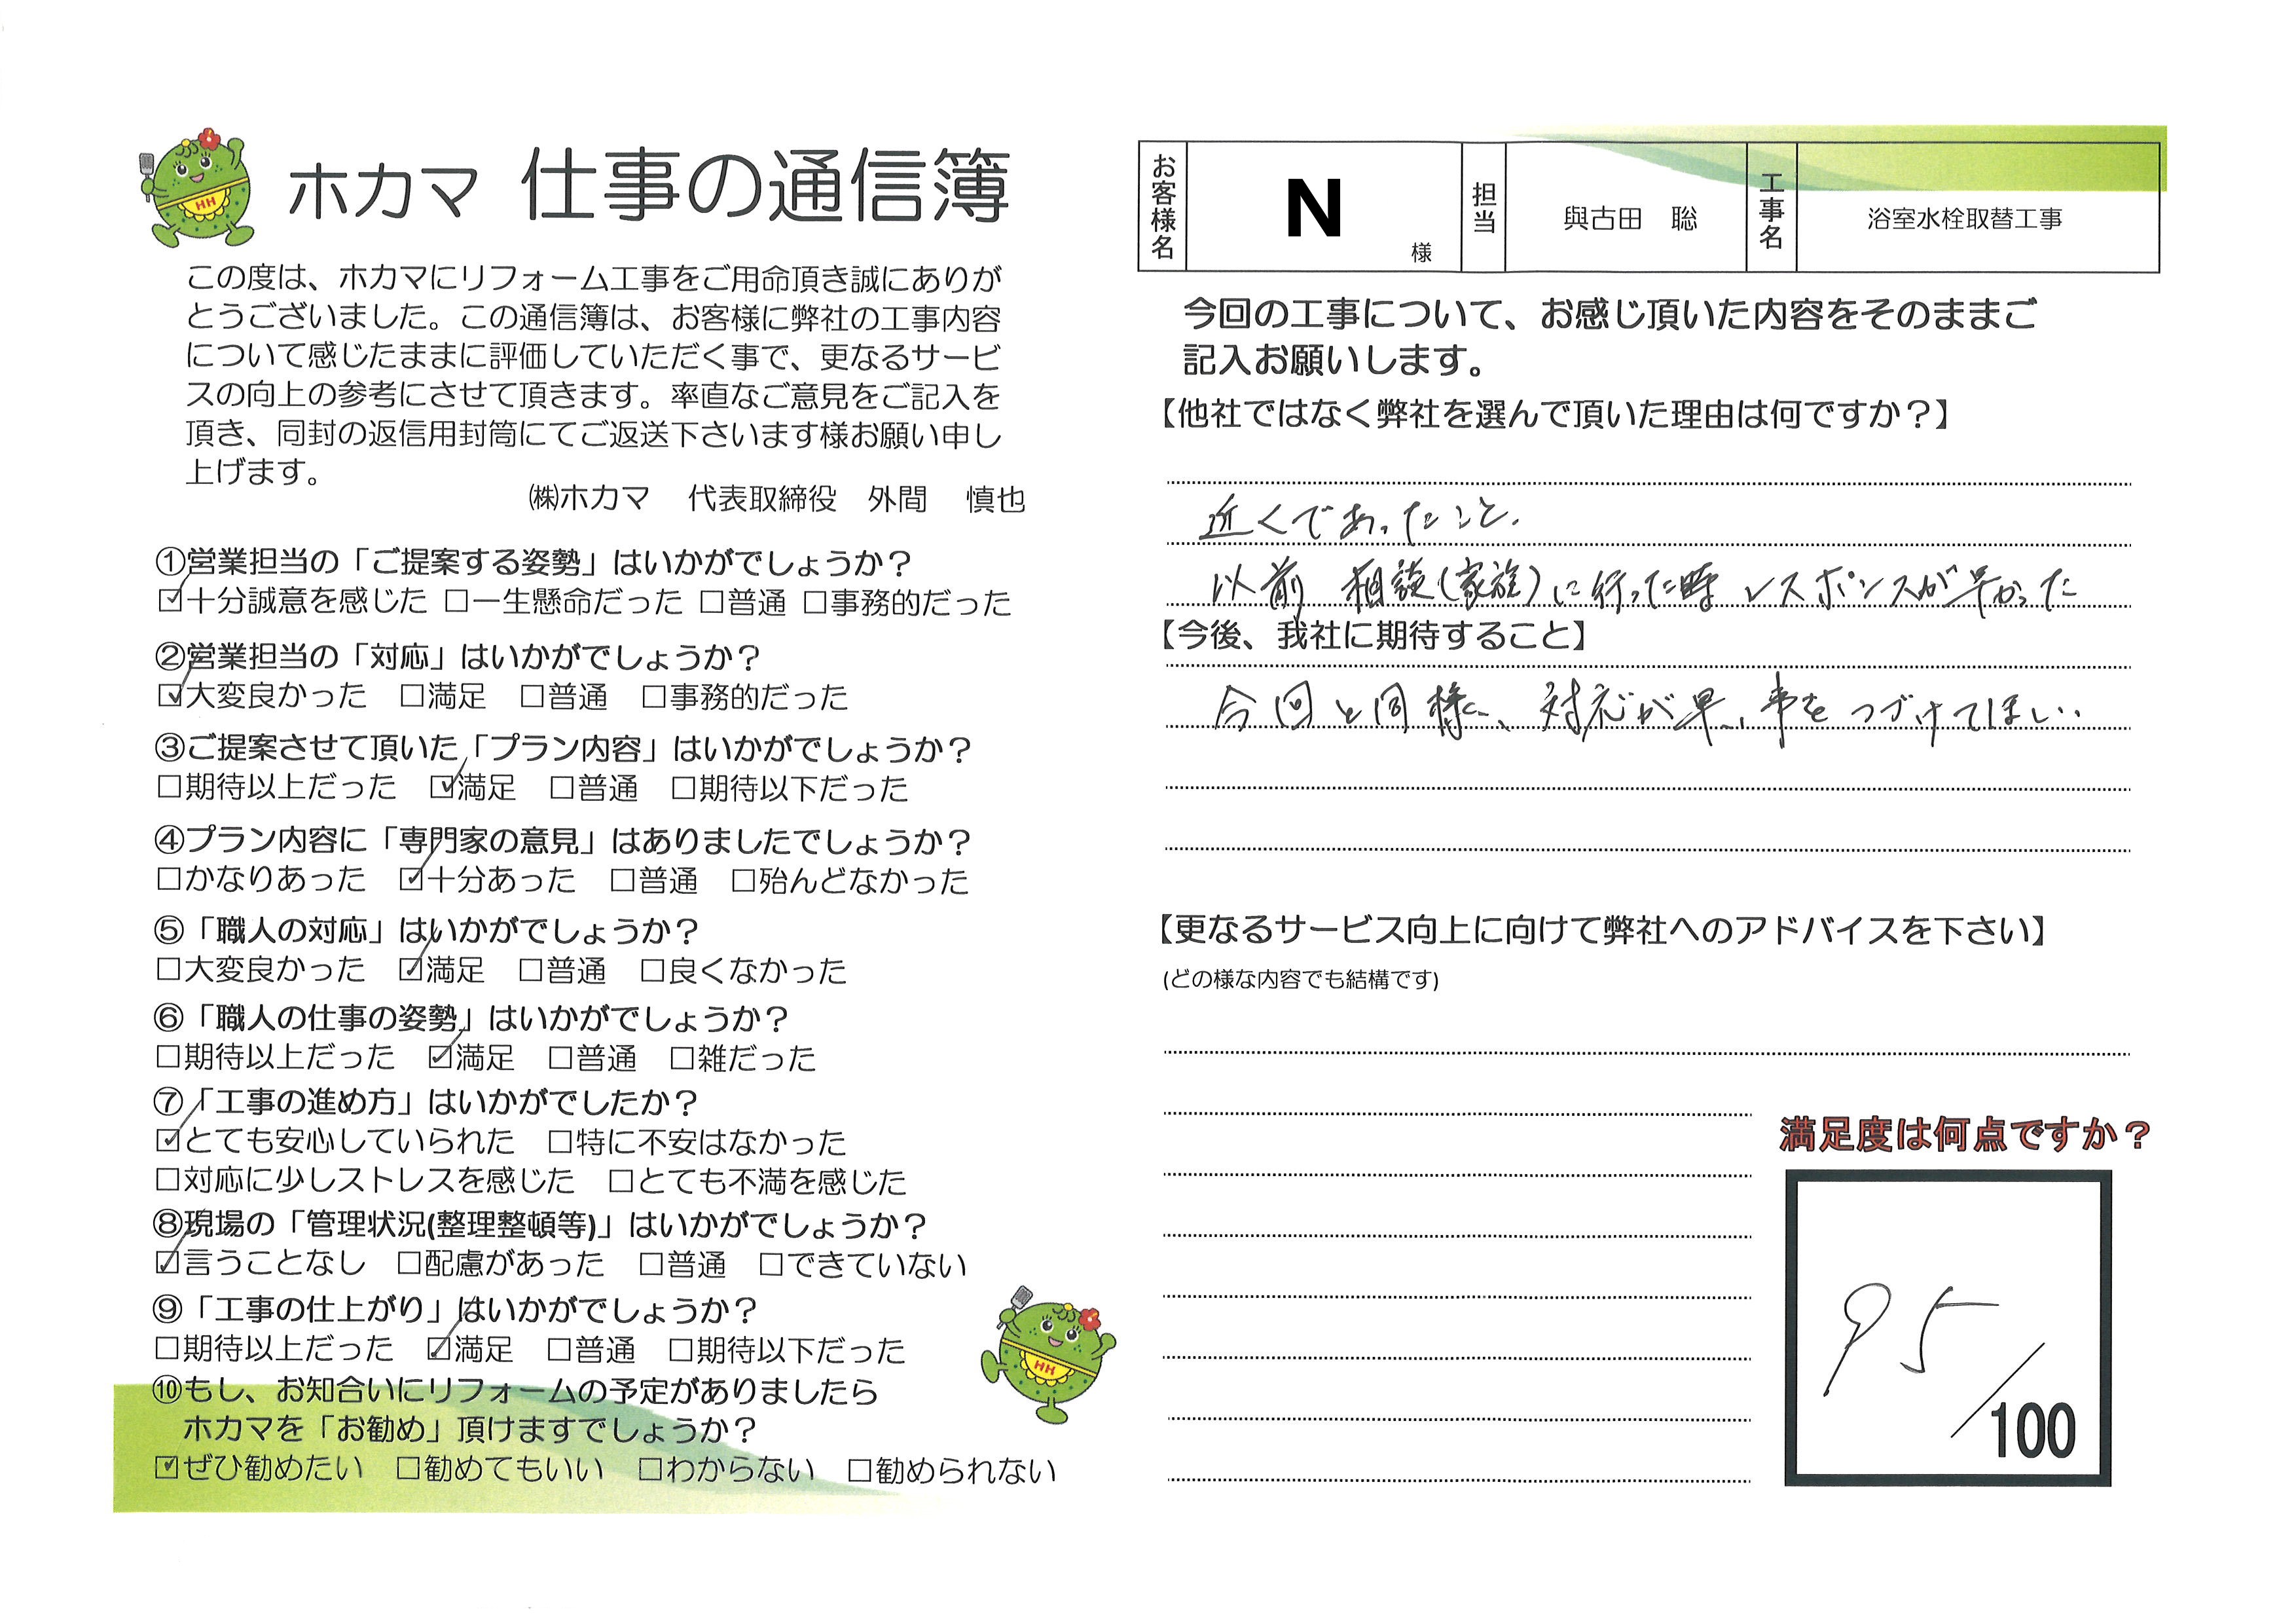 ホカマ 仕事の通信簿
この度は、ホカマにリフォーム工事をご用命頂き誠にありが
とうございました。この通信簿は、お客様に弊社の工事内容
について感じたままに評価していただく事で、更なるサービ
スの向上の参考にさせて頂きます。率直なご意見をご記入を
頂き、同封の返信用封筒にてご返送下さいます様お願い申し
上げます。
㈱ホカマ 代表取締役 外間 慎也
①営業担当の「ご提案する姿勢」はいかがでしょうか？
☑十分誠意を感じた □一生懸命だった □普通 □事務的だった
②営業担当の「対応」はいかがでしょうか？
☑大変良かった □満足 □普通 □事務的だった
③ご提案させて頂いた「プラン内容」はいかがでしょうか？
□期待以上だった ☑満足 □普通 □期待以下だった
④プラン内容に「専門家の意見」はありましたでしょうか？
□かなりあった ☑十分あった □普通 □殆んどなかった
⑤「職人の対応」はいかがでしょうか？
□大変良かった ☑満足 □普通 □良くなかった
⑥「職人の仕事の姿勢」はいかがでしょうか？
□期待以上だった ☑満足 □普通 □雑だった
⑦「工事の進め方」はいかがでしたか？
☑とても安心していられた □特に不安はなかった
□対応に少しストレスを感じた □とても不満を感じた
⑧現場の「管理状況(整理整頓等)」はいかがでしょうか？
☑言うことなし □配慮があった □普通 □できていない
⑨「工事の仕上がり」はいかがでしょうか？
□期待以上だった ☑満足 □普通 □期待以下だった
⑩もし、お知合いにリフォームの予定がありましたら
ホカマを「お勧め」頂けますでしょうか？
☑ぜひ勧めたい □勧めてもいい □わからない □勧められない
HH
HH
お客様名 N 様 担当 與古田 聡 工事名 浴室水栓取替工事
今回の工事について、お感じ頂いた内容をそのままご
記入お願いします。
【他社ではなく弊社を選んで頂いた理由は何ですか？】
近くであったこと.
以前 相談(家族)に行った時 レスポンスが早かった
【今後、我社に期待すること】
今回と同様に、対応が早い事をつづけてほしい.
【更なるサービス向上に向けて弊社へのアドバイスを下さい】
(どの様な内容でも結構です)
満足度は何点ですか？
95
/100